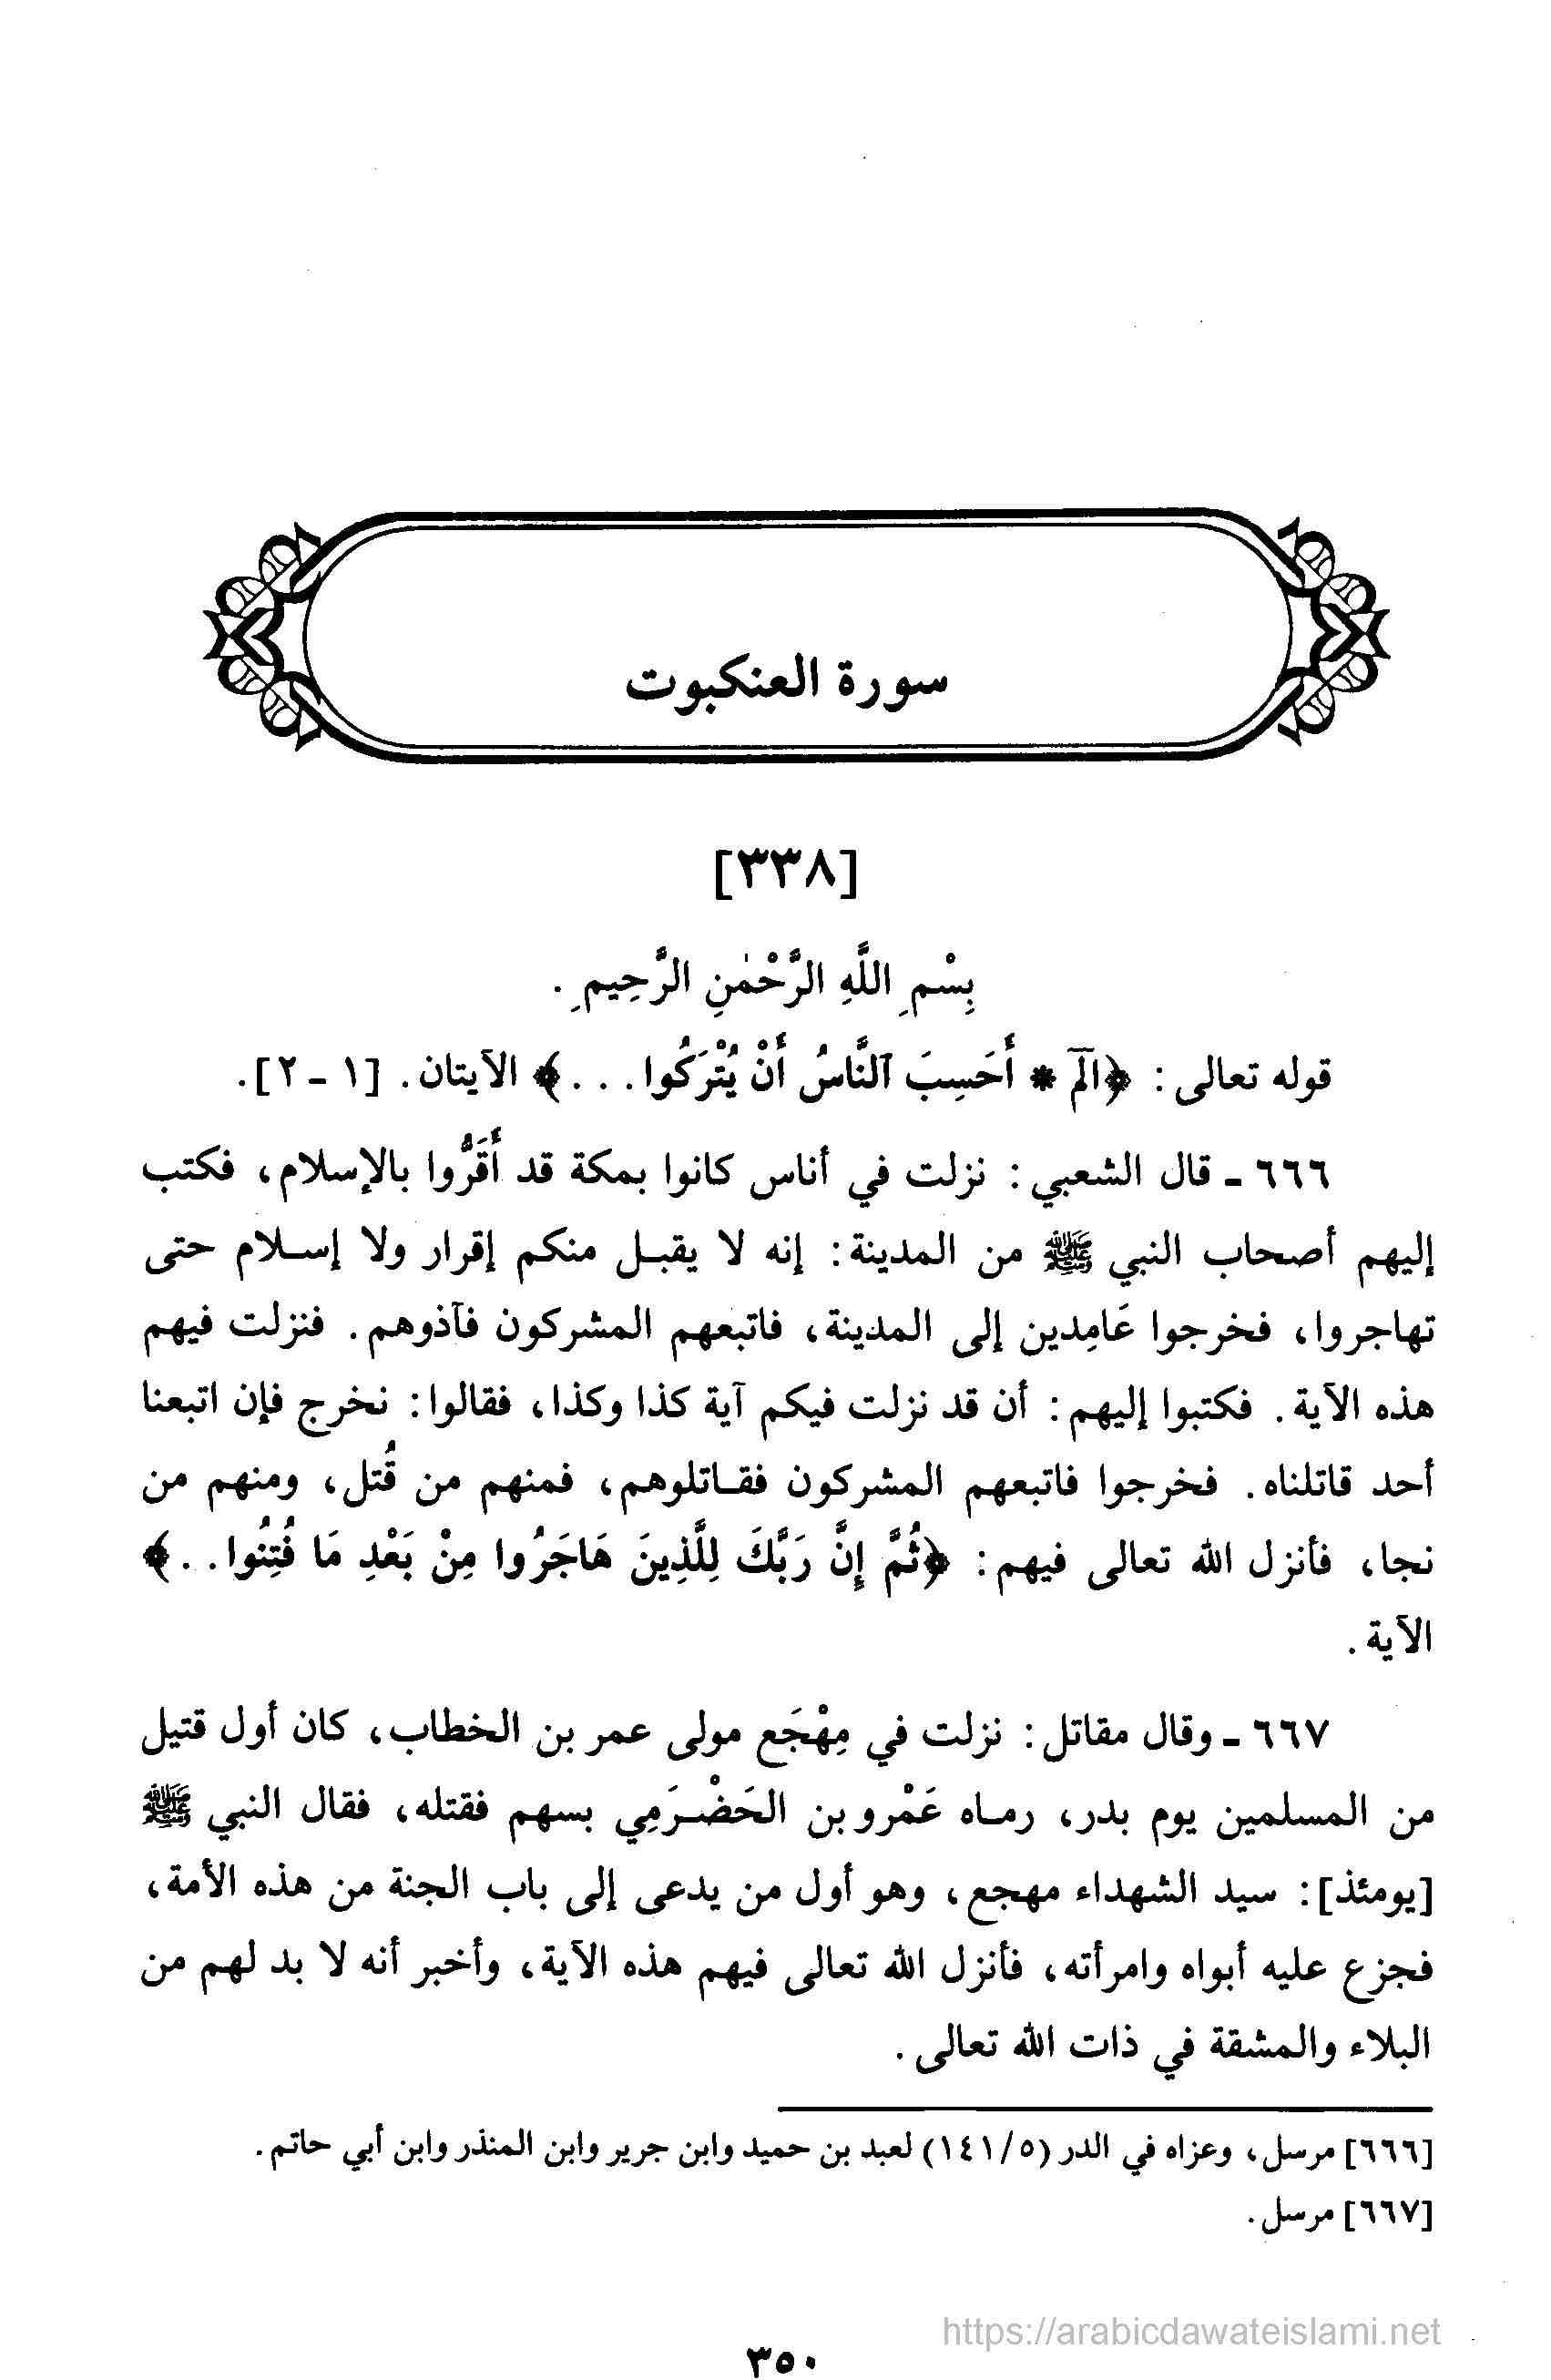 سورة العنكبوت
[٣٣٨]
بِسْمِ اللَّهِ الرَّحْمٰنِ الرَّحِيمِ.
قوله تعالى: ﴿الٓمٓ * أَحَسِبَ ٱلنَّاسُ أَنْ يُتْرَكُوا...﴾ الآيتان. [١ - ٢].
٦٦٦ - قال الشعبي: نزلت في أناس كانوا بمكة قد أَقَرُّوا بالإسلام، فكتب
إليهم أصحاب النبي ﷺ من المدينة: إنه لا يقبل منكم إقرار ولا إسلام حتى
تهاجروا، فخرجوا عَامِدين إلى المدينة، فاتبعهم المشركون فآذوهم. فنزلت فيهم
هذه الآية. فكتبوا إليهم: أن قد نزلت فيكم آية كذا وكذا، فقالوا: نخرج فإن اتبعنا
أحد قاتلناه. فخرجوا فاتبعهم المشركون فقاتلوهم، فمنهم من قُتل، ومنهم من
نجا، فأنزل الله تعالى فيهم: ﴿ثُمَّ إِنَّ رَبَّكَ لِلَّذِينَ هَاجَرُوا مِنْ بَعْدِ مَا فُتِنُوا..﴾
الآية.
٦٦٧ - وقال مقاتل: نزلت في مِهْجَع مولى عمر بن الخطاب، كان أول قتيل
من المسلمين يوم بدر، رماه عَمْرو بن الحَضْرَمِي بسهم فقتله، فقال النبي ﷺ
[يومئذ]: سيد الشهداء مهجع، وهو أول من يدعى إلى باب الجنة من هذه الأمة،
فجزع عليه أبواه وامرأته، فأنزل الله تعالى فيهم هذه الآية، وأخبر أنه لا بد لهم من
البلاء والمشقة في ذات الله تعالى.
[٦٦٦] مرسل، وعزاه في الدر (١٤١/٥) لعبد بن حميد وابن جرير وابن المنذر وابن أبي حاتم.
[٦٦٧] مرسل.
https://arabicdawateislami.net
٣٥٠